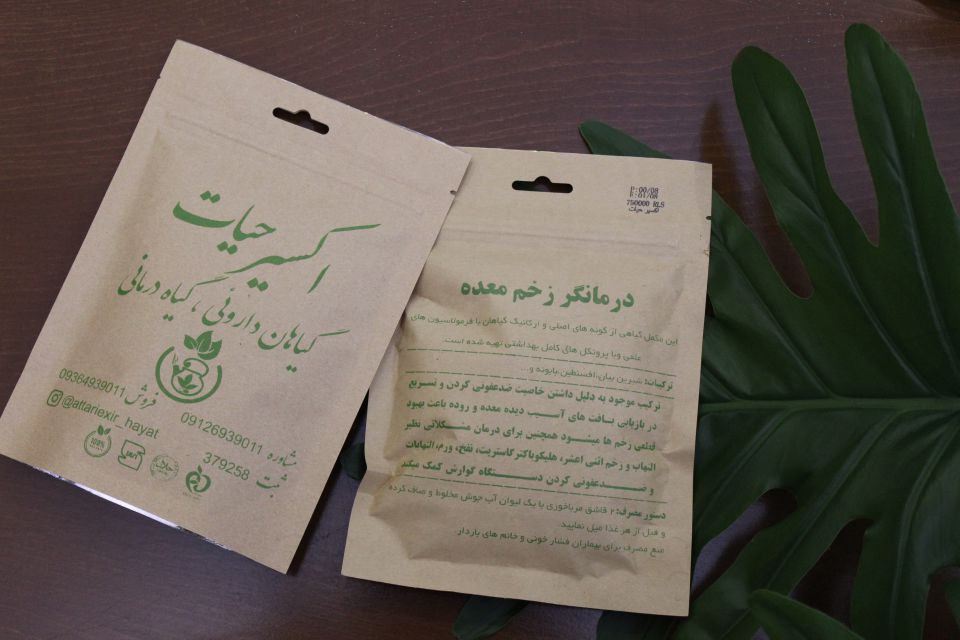 اکسیر حیات
گیاهان داروئی، گیاه درمانی
فروش 09364939011
مشاوره 09126939011
@attariexir_hayat
ثبت 379258
100%
P:00/08
E:01/08
750000 RLS
اکسیر حیات
درمانگر زخم معده
این مکمل گیاهی از گونه های اصلی و ارگانیک گیاهان با فرمولاسیون های
علمی وبا پروتکل های کامل بهداشتی تهیه شده است.
ترکیبات: شیرین بیان،افسنطین،بابونه و...
ترکیب موجود به دلیل داشتن خاصیت ضدعفونی کردن و تسریع
در بازیابی بافت های آسیب دیده معده و روده باعث بهبود
قطعی زخم ها میشود همچنین برای درمان مشکلاتی نظیر
التهاب و زخم اثنی اعشر، هلیکوباکتر،گاستریت، نفخ، ورم، التهابات
و ضدعفونی کردن دستگاه گوارش کمک میکند
دستور مصرف: ۲ قاشق مرباخوری با یک لیوان آب جوش مخلوط و صاف کرده
و قبل از هر غذا میل نمایید.
منع مصرف برای بیماران فشار خونی و خانم های باردار.